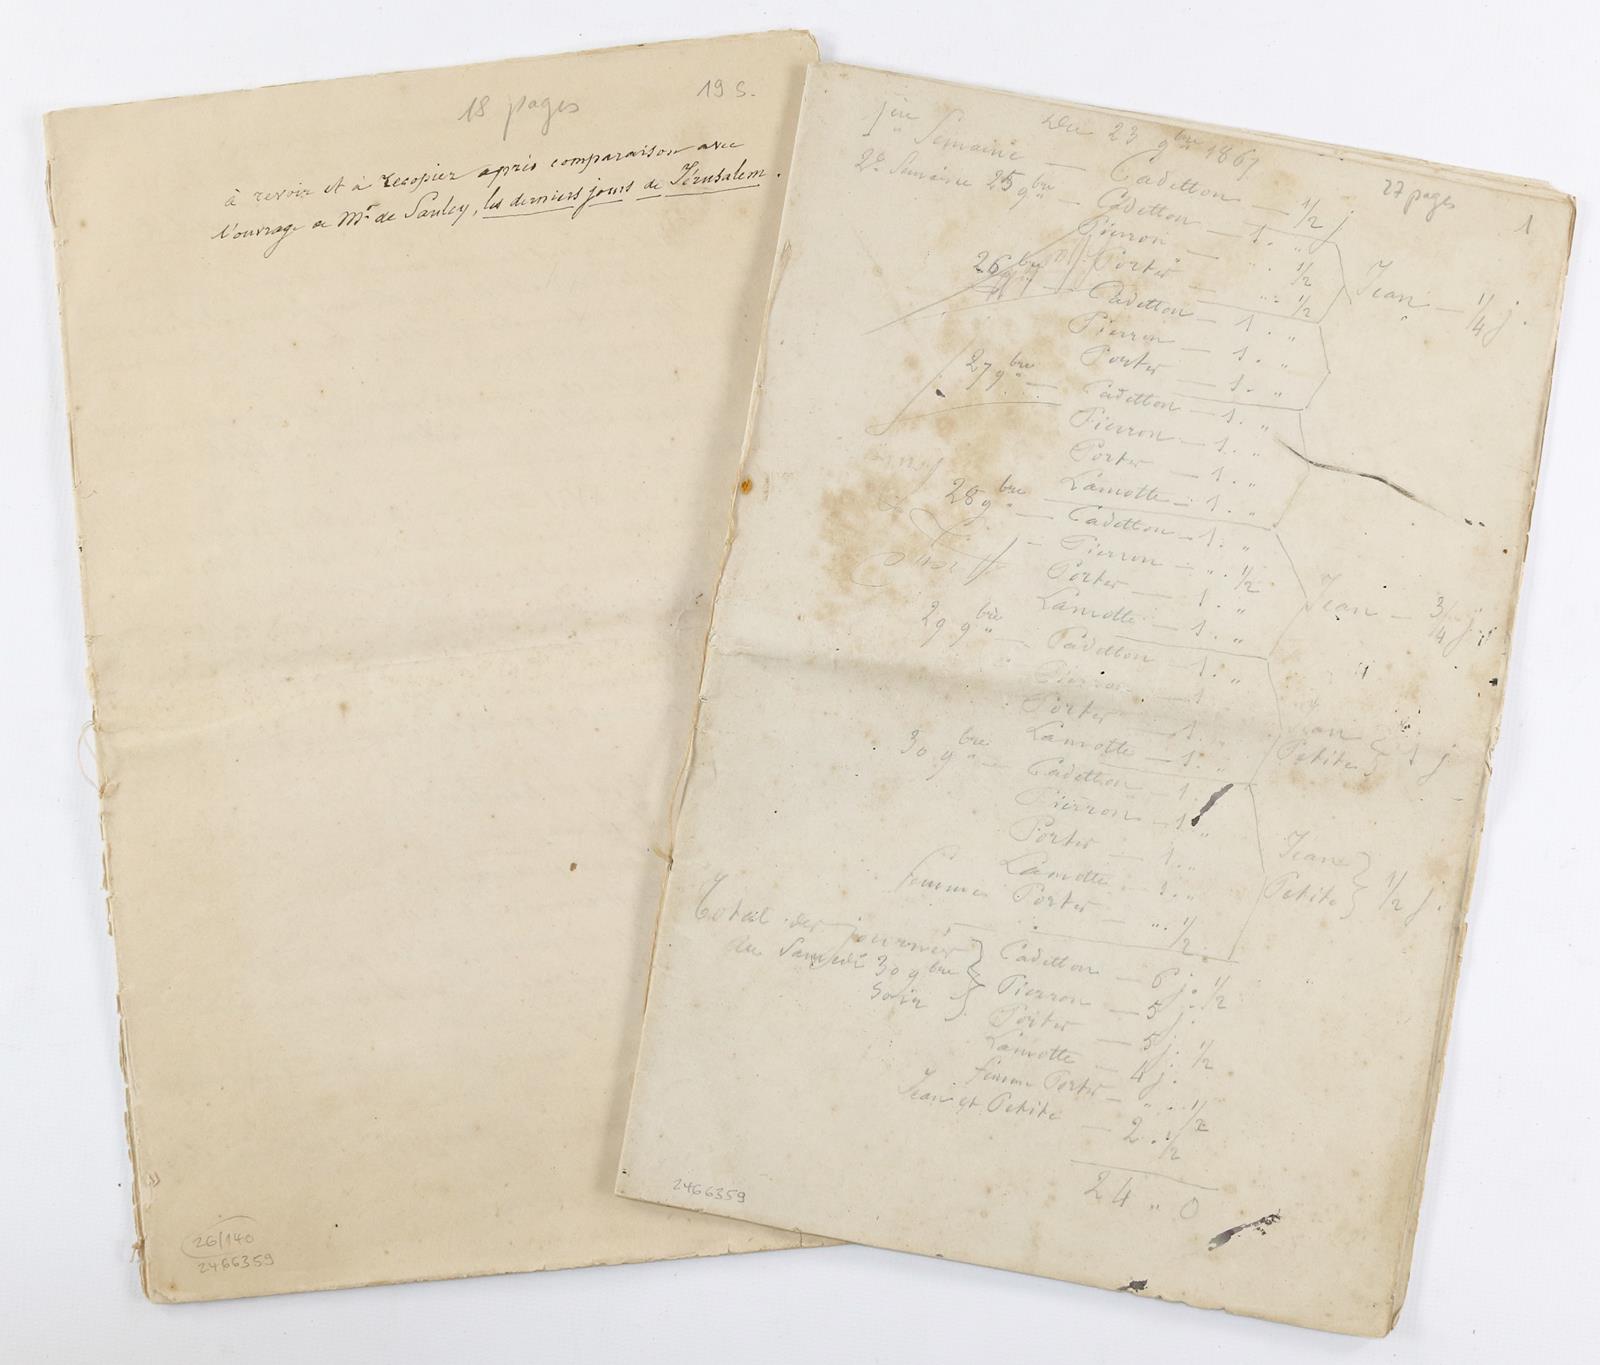 18 pages
19 S.
à revoir et à recopier après comparaison avec
l'ouvrage de Mr de Saulcy, les derniers jours de Jérusalem.
26/140
2466359
27 pages
1
Du 23 9bre 1867
1ère Semaine — Cadetton — 1/2 j
2e Semaine 25 9bre — Cadetton — 1. "
Pierron — ". 1/2
Porter — ". 1/2
Jean — 1/4 j.
26 9bre — Cadetton — 1. "
Pierron — 1. "
Porter — 1. "
27 9bre — Cadetton — 1. "
Pierron — 1. "
Porter — 1. "
Lamotte — 1. "
28 9bre — Cadetton — 1. "
— Pierron — ". 1/2
Porter — 1. "
Lamotte — 1. "
Jean — 3/4 j.
29 9bre — Cadetton — 1. "
Pierron — 1
Porter — 1. "
Lamotte — 1. "
Jean
Petite } 1 j
30 9bre — Cadetton — 1.
Pierron — 1. "
Porter — 1. "
Lamotte — 1. "
femme Porter — ". 1/2
Jean
Petite } 1/2 j.
Total des journées
au Samedi 30 9bre
soir
Cadetton — 6 j. 1/2
Pierron — 5 j.
Porter — 5 j. 1/2
Lamotte — 4 j.
femme Porter — ". 1/2
Jean et Petite — 2. 1/2
24 " 0
2466359